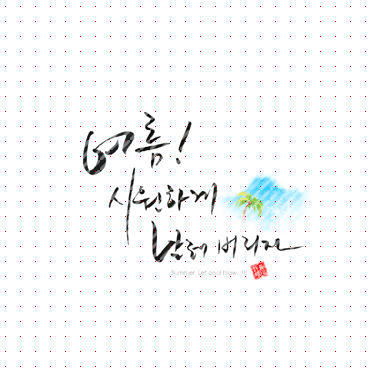 여름!
시원하게
날려 버리자
Summer Let cool blow..!!!